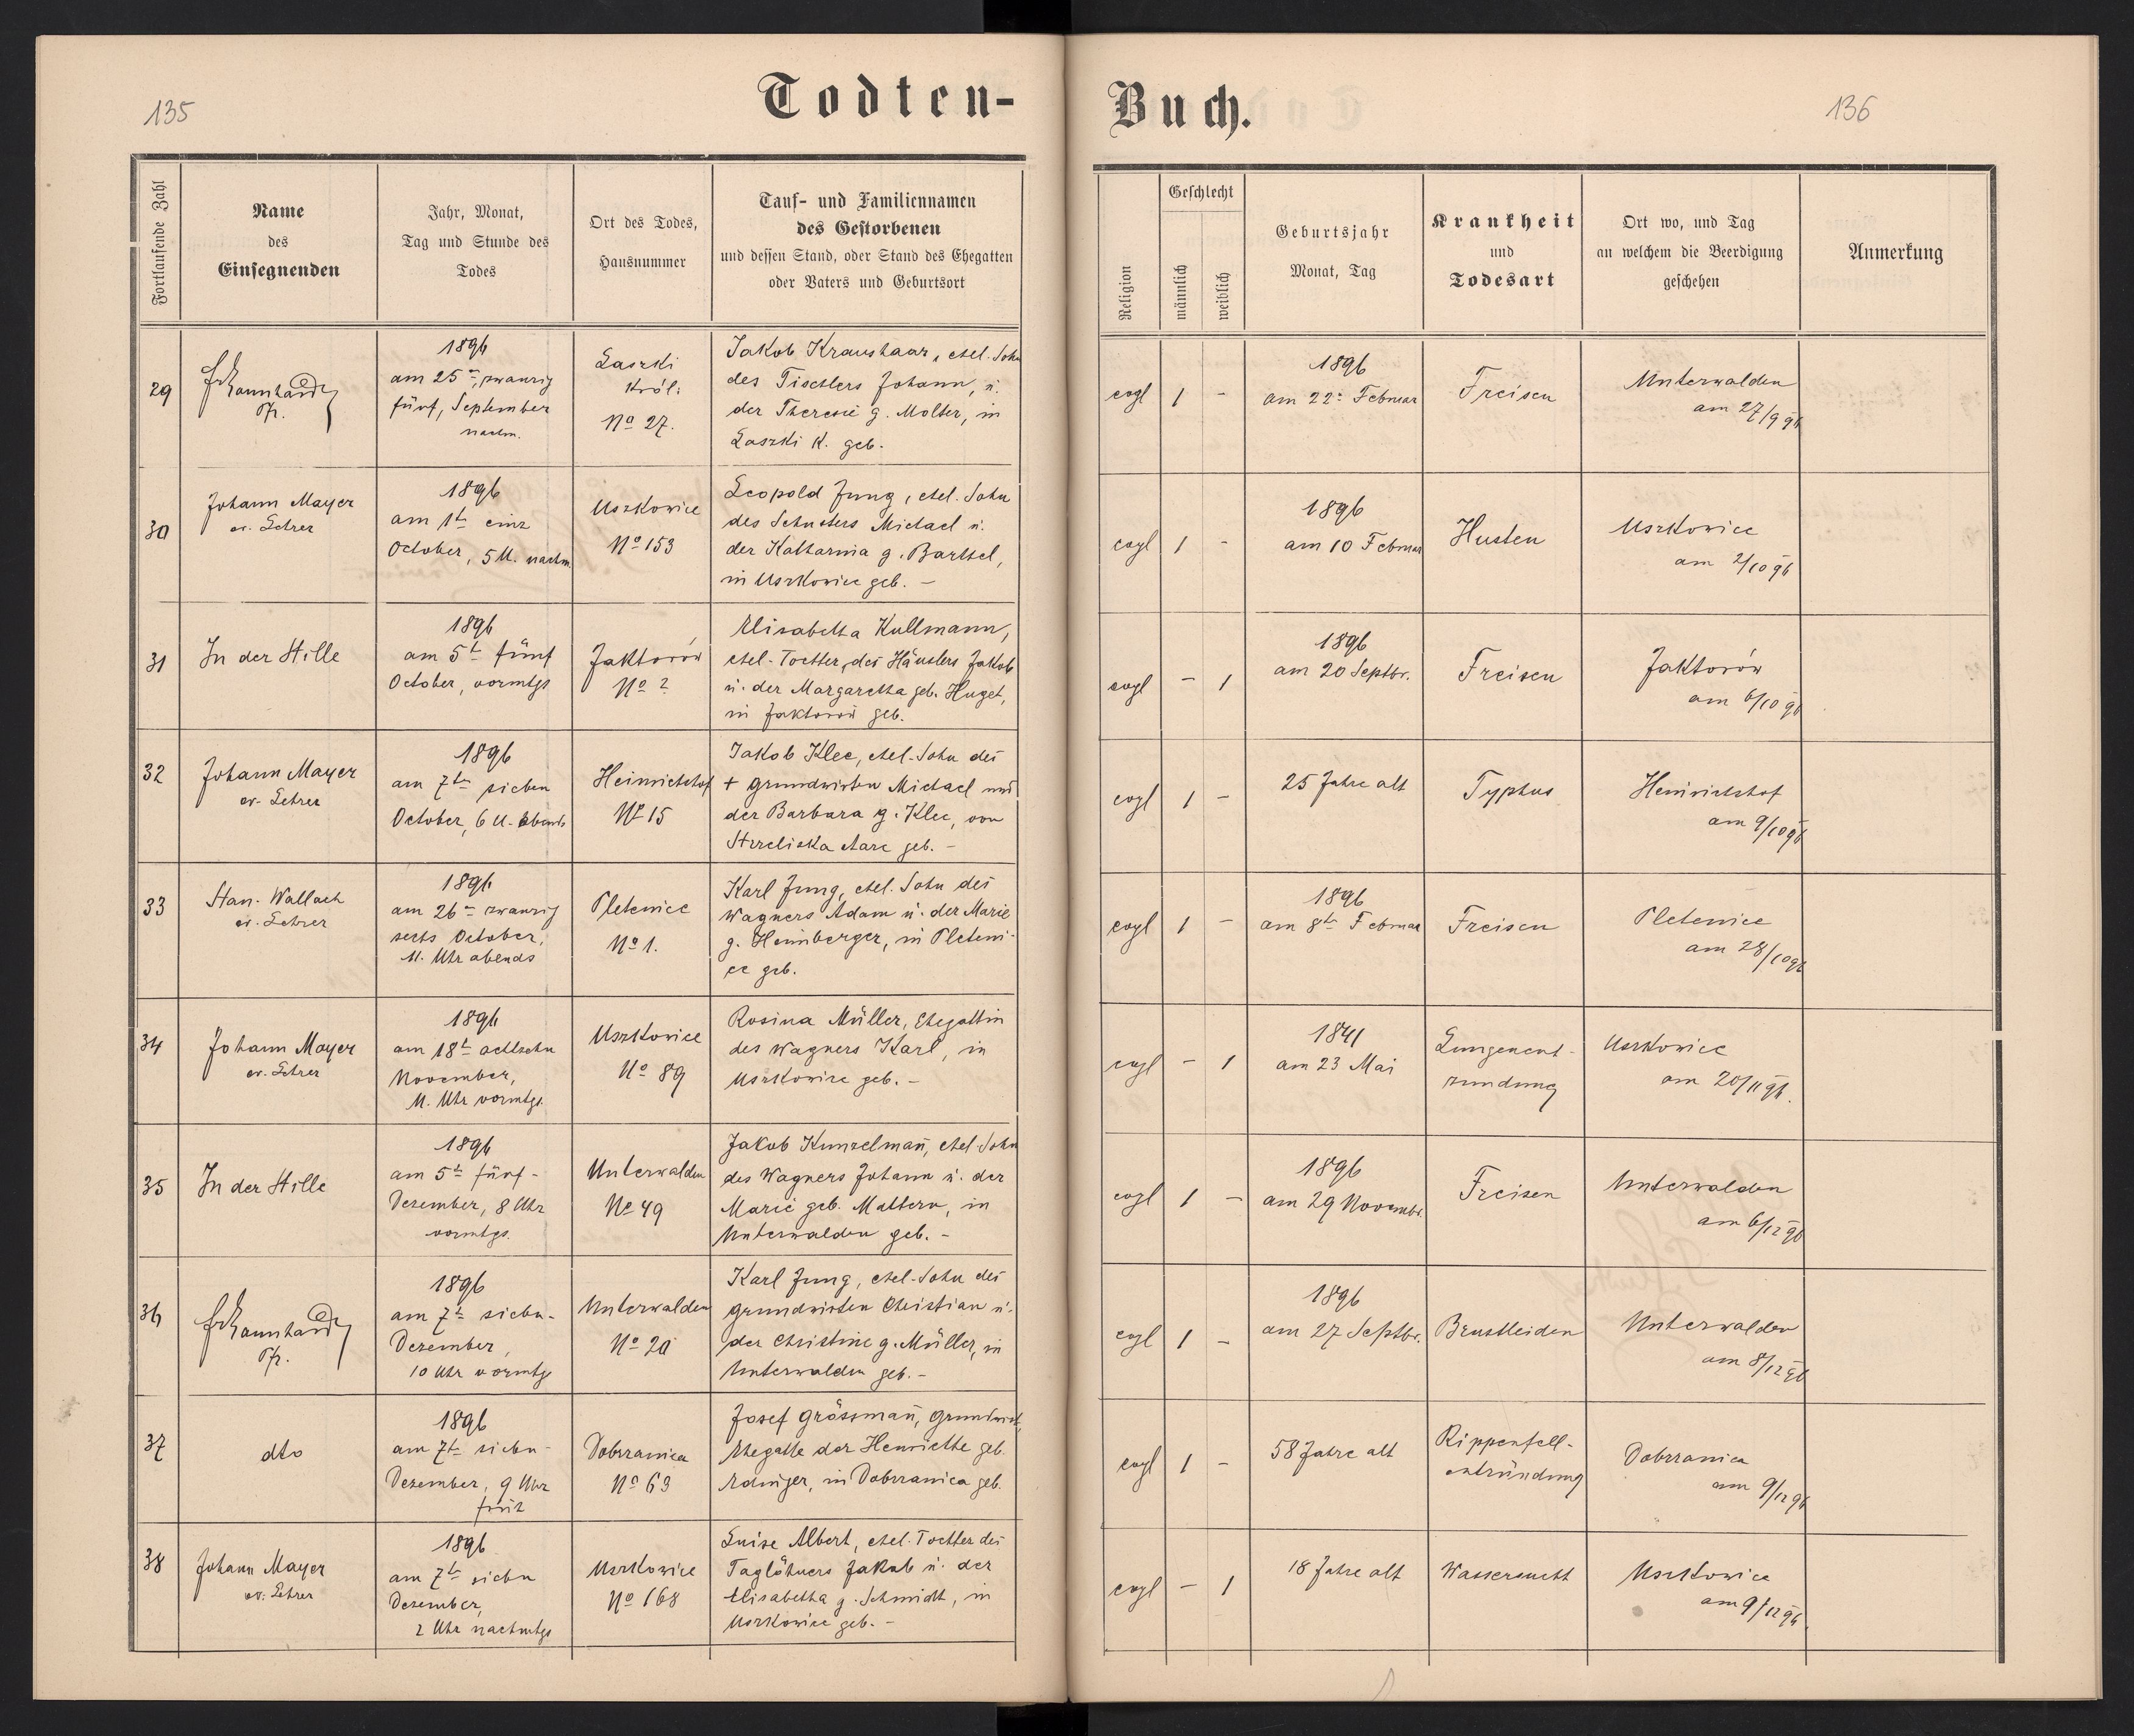 135
Todten-
Buch.
136
Fortlaufende Zahl
Name
des
Einsegnenden
Jahr, Monat,
Tag und Stunde des
Todes
Ort des Todes,
Hausnummer
Tauf- und Familiennamen
des Gestorbenen
und dessen Stand, oder Stand des Ehegatten
oder Vaters und Geburtsort
Religion
Geschlecht
männlich
weiblich
Geburtsjahr
Monat, Tag
Krankheit
und
Todesart
Ort wo, und Tag
an welchem die Beerdigung
geschehen
Anmerkung
29
Pfr.
1896
am 25t zwanzig
fünf, September
nachm.
Laszki
Król:
No 27.
Jakob Kraushaar, ehel. Sohn
des Tischlers Johann, u.
der Theresie g. Molter, in
Laszki K. geb.
evgl
1
-
1896
am 22t Februar
Freisen
Unterwalden
am 27/9 96
30
Johann Mayer
ev. Lehrer
1896
am 1t einz
October, 5 U. nachm
Uszkowice
No 153
Leopold Jung, ehel. Sohn
des Schusters Michael u.
der Katharina g. Barthel,
in Uszkowice geb. -
evgl
1
-
1896
am 10 Februar
Husten
Uszkowice
am 2/10 96
31
In der Stille
1896
am 5t fünf
October, vormtgs
Jaktorów
No ?
Elisabetha Kullmann,
ehel. Tochter, des Häuslers Jakob
u. der Margaretha geb. Huget,
in Jaktorow geb.
evgl
-
1
1896
am 20 Septbr.
Freisen
Jaktorów
am 6/10 96
32
Johann Mayer
ev. Lehrer
1896
am 7t sieben
October, 6 U. abends
Heinrichshof
No 15
Jakob Klee, ehel. Sohn des
+ Grundwirten Michael und
der Barbara g. Klee, von
Strzeliska stare geb. -
evgl
1
-
25 Jahre alt
Typhus
Heinrichshof
am 9/10 96
33
Stan. Wallach
ev. Lehrer
1896
am 26t zwanzig
sechs October,
11. Uhr abends
Pletenice
No 1.
Karl Jung, ehel. Sohn des
Wagners Adam u. der Marie
g. Heimberger, in Pleteni-
ce geb.
evgl
1
-
1896
am 8t Februar
Freisen
Pletenice
am 28/10 96
34
Johann Mayer
ev. Lehrer
1896
am 18t achtzehn
November,
11. Uhr vormtgs.
Uszkowice
No 89
Rosina Müller, Ehegattin
des Wagners Karl, in
Uszkowice geb. -
evgl
-
1
1841
am 23 Mai
Lungenent-
zundung
Uszkowice
am 20/11 96.
35
In der Stille
1896
am 5t fünf-
Dezember, 8 Uhr
vormtgs.
Unterwalden
No 49
Jakob Kunzelmañ, ehel. Sohn
des Wagners Johann u. der
Marie geb. Mattern, in
Unterwalden geb. -
evgl
1
-
1896
am 29 Novembr.
Freisen
Unterwalden
am 6/12 96
36
Pfr.
1896
am 7t siebn-
Dezember,
10 Uhr vormtgs
Unterwalden
No 20
Karl Jung, ehel. Sohn des
Grundwirten Christian u.
der Christine g. Müller, in
Unterwalden geb. -
evgl
1
-
1896
am 27 Septbr.
Brustleiden
Unterwalden
am 8/12 96
37
dto
1896
am 7t siebn-
Dezember, 9 Uhr
früh
Dobrzanica
No 63
Josef Grössmañ, Grundwirt,
Ehegatte der Henriette geb.
in Dobrzanica geb.
evgl
1
-
58 Jahre alt
Rippenfell-
entzündung
Dobrzanica
am 9/12 96
38
Johann Mayer
ev. Lehrer
1896
am 7t siebn
Dezember,
2 Uhr nachmtgs
Uszkowice
No 168
Luise Albert, ehel. Tochter des
Taglöhners Jakob u. der
Elisabetha g. Schmidt, in
Uszkowice geb. -
evgl
-
1
18 Jahre alt
Wassersucht
Uszkowice
am 9/12 96.